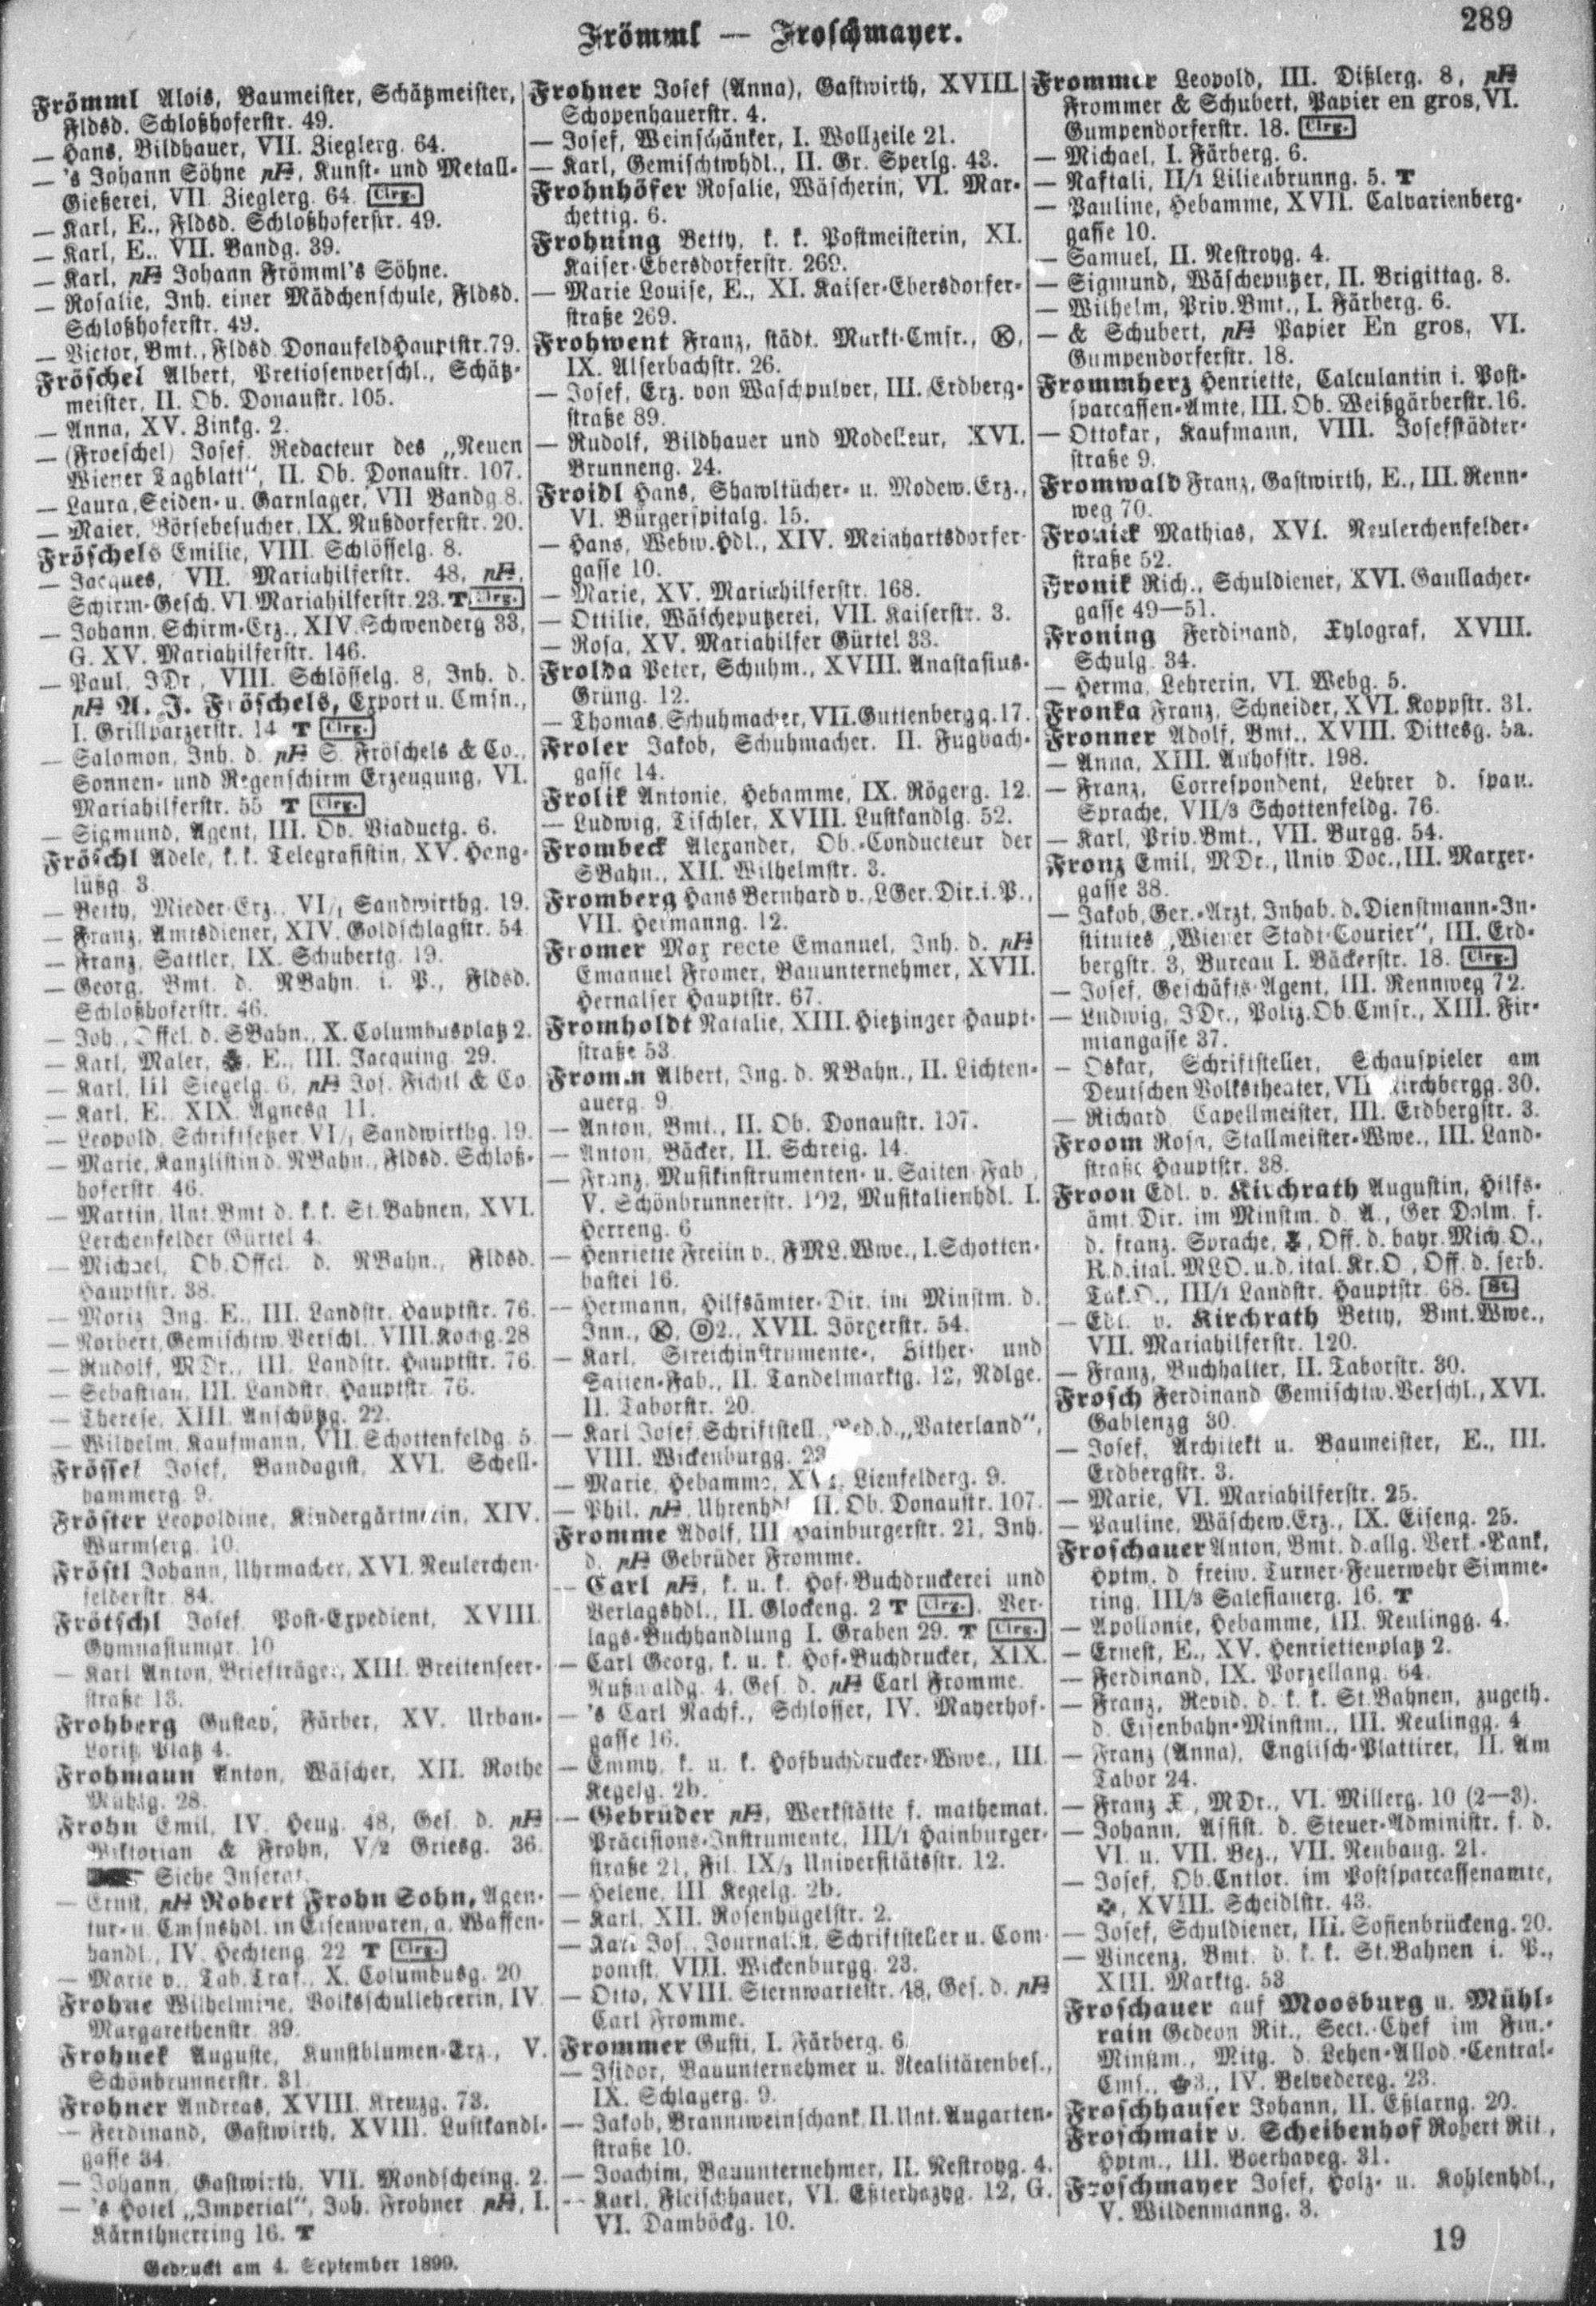 Frömml — Froschmayer.
289
Frömml Alois, Baumeister, Schätzmeister,
Fldsd. Schloßhoferstr. 49.
— Hans, Bildhauer, VII. Zieglerg. 64.
— 's Johann Söhne pF, Kunst- und Metall-
Gießerei, VII. Zieglerg. 64. Clrg.
— Karl, E., Fldsd. Schloßhoferstr. 49.
— Karl, E., VII. Bandg. 39.
— Karl, pF Johann Frömml's Söhne.
— Rosalie, Inh. einer Mädchenschule, Fldsd.
Schloßhoferstr. 49.
— Victor, Bmt., Fldsd. Donaufeld Hauptstr. 79.
Fröschel Albert, Pretiosenverschl., Schätz-
meister, II. Ob. Donaustr. 105.
— Anna, XV. Zinkg. 2.
— (Froeschel) Josef, Redacteur des „Neuen
Wiener Tagblatt", II. Ob. Donaustr. 107.
— Laura, Seiden- u. Garnlager, VII Bandg. 8.
— Maier, Börsebesucher, IX. Nußdorferstr. 20.
Fröschels Emilie, VIII. Schlösselg. 8.
— Jacques, VII. Mariahilferstr. 48, pF,
Schirm-Gesch. VI. Mariahilferstr. 23. T Clrg.
— Johann, Schirm-Erz., XIV. Schwenderg 33,
G. XV. Mariahilferstr. 146.
— Paul, JDr., VIII. Schlösselg. 8, Inh. d.
pF A. J. Fröschels, Export u. Cmsn.,
I. Grillparzerstr. 14 T Clrg.
— Salomon, Inh. d. pF S. Fröschels & Co.,
Sonnen- und Regenschirm Erzeugung, VI.
Mariahilferstr. 55 T Clrg.
— Sigmund, Agent, III. Ob. Viaductg. 6.
Fröschl Adele, k. k. Telegrafistin, XV. Heng-
lüßg. 3.
— Betty, Mieder-Erz., VI/1 Sandwirthg. 19.
— Franz, Amtsdiener, XIV. Goldschlagstr. 54.
— Franz, Sattler, IX. Schubertg. 19.
— Georg, Bmt. d. NBahn. i. P., Fldsd.
Schloßhoferstr. 46.
— Joh., Offcl. d. SBahn., X. Columbusplatz 2.
— Karl, Maler, E., III. Jacquing. 29.
— Karl, III Siegelg. 6, pF Jos. Fichtl & Co.
— Karl, E. XIX. Agnesg 11.
— Leopold, Schriftsetzer VI/1 Sandwirthg. 19.
— Marie, Kanzlistin d. NBahn., Fldsd. Schloß-
hoferstr. 46.
— Martin, Unt. Bmt d. k. k. St.Bahnen, XVI.
Lerchenfelder Gürtel 4.
— Michael, Ob. Offcl. d. NBahn., Fldsd.
Hauptstr. 38.
— Moriz Ing. E., III. Landstr. Hauptstr. 76.
— Norbert, Gemischtw. Verschl., VIII. Kochg. 28
— Rudolf, MDr., III. Landstr. Hauptstr. 76.
— Sebastian, III. Landstr. Hauptstr. 76.
— Therese, XIII. Anschützg. 22.
— Wilhelm, Kaufmann, VII. Schottenfeldg. 5.
Frössel Josef, Bandagist, XVI. Schell-
hammerg. 9.
Fröster Leopoldine, Kindergärtnerin, XIV.
Wurmserg. 10.
Fröstl Johann, Uhrmacher, XVI. Neulerchen-
felderstr. 84.
Frötschl Josef, Post-Expedient, XVIII.
Gymnasiumstr. 10
— Karl Anton, Briefträger, XIII. Breitenseer-
straße 13.
Frohberg Gustav, Färber, XV. Urban-
Loritz Platz 4.
Frohmann Anton, Wäscher, XII. Rothe
Mühlg. 28.
Frohn Emil, IV. Heug. 48, Ges. d. pF
Viktorian & Frohn, V/2 Griesg. 36.
Siehe Inserat.
— Ernst, pF Robert Frohn Sohn, Agen-
tur- u. Cmsnshdl. in Eisenwaren, a. Waffen-
handl., IV. Hechteng. 22 T Clrg.
— Marie v., Tab. Traf., X. Columbusg. 20
Frohne Wilhelmine, Volksschullehrerin, IV.
Margarethenstr. 39.
Frohnek Auguste, Kunstblumen-Erz., V.
Schönbrunnerstr. 31.
Frohner Andreas, XVIII. Kreuzg. 73.
— Ferdinand, Gastwirth, XVIII. Lustkandl-
gasse 34.
— Johann, Gastwirth, VII. Mondscheing. 2.
— 's Hotel „Imperial", Joh. Frohner pF, I.
Kärnthnerring 16. T
Gedruckt am 4. September 1899.
Frohner Josef (Anna), Gastwirth, XVIII.
Schopenhauerstr. 4.
— Josef, Weinschänker, I. Wollzeile 21.
— Karl, Gemischtwhdl., II. Gr. Sperlg. 43.
Frohnhöfer Rosalie, Wäscherin, VI. Mar-
chettig. 6.
Frohning Betty, k. k. Postmeisterin, XI.
Kaiser-Ebersdorferstr. 269.
— Marie Louise, E., XI. Kaiser-Ebersdorfer-
straße 269.
Frohwent Franz, städt. Markt-Cmsr., K,
IX. Alserbachstr. 26.
— Josef, Erz. von Waschpulver, III. Erdberg-
straße 89.
— Rudolf, Bildhauer und Modelleur, XVI.
Brunneng. 24.
Froidl Hans, Shawltücher- u. Modew. Erz.,
VI. Bürgerspitalg. 15.
— Hans, Webw. Hdl., XIV. Meinhartsdorfer-
gasse 10.
— Marie, XV. Mariahilferstr. 168.
— Ottilie, Wäscheputzerei, VII. Kaiserstr. 3.
— Rosa, XV. Mariahilfer Gürtel 33.
Frolda Peter, Schuhm., XVIII. Anastasius-
Grüng. 12.
— Thomas, Schuhmacher, VII. Guttenbergg. 17.
Froler Jakob, Schuhmacher. II. Fugbach-
gasse 14.
Frolik Antonie, Hebamme, IX. Rögerg. 12.
— Ludwig, Tischler, XVIII. Lustkandlg. 52.
Frombeck Alexander, Ob.-Conducteur der
SBahn., XII. Wilhelmstr. 3.
Fromberg Hans Bernhard v., LGer. Dir. i. P.,
VII. Hermanng. 12.
Fromer Max recte Emanuel, Inh. d. pF
Emanuel Fromer, Bauunternehmer, XVII.
Hernalser Hauptstr. 67.
Fromholdt Natalie, XIII. Hietzinger Haupt-
straße 53.
Fromm Albert, Ing. d. NBahn., II. Lichten-
auerg. 9.
— Anton, Bmt., II. Ob. Donaustr. 107.
— Anton, Bäcker, II. Schreig. 14.
— Franz, Musikinstrumenten- u. Saiten Fab.,
V. Schönbrunnerstr. 102, Musikalienhdl. I.
Herreng. 6
— Henriette Freiin v., FML. Wwe., I. Schotten-
bastei 16.
— Hermann, Hilfsämter-Dir. im Minstm. d.
Inn., K, O2., XVII. Jörgerstr. 54.
— Karl, Streichinstrumente-, Zither- und
Saiten-Fab., II. Tandelmarktg. 12, Ndlge.
II. Taborstr. 20.
— Karl Josef, Schriftstell., Red. d. „Vaterland",
VIII. Wickenburgg. 23
— Marie, Hebamme, Lienfelderg. 9.
— Phil. pF, Uhrenhdl. II. Ob. Donaustr. 107.
Fromme Adolf, III Hainburgerstr. 21, Inh.
d. pF Gebrüder Fromme.
— Carl pF, k. u. k. Hof-Buchdruckerei und
Verlagshdl., II. Glockeng. 2 T Clrg., Ver-
lags-Buchhandlung I. Graben 29. T Clrg.
— Carl Georg, k. u. k. Hof-Buchdrucker, XIX.
Nußwaldg. 4, Ges. d. pF Carl Fromme.
— 's Carl Nachf., Schlosser, IV. Mayerhof-
gasse 16.
— Emmy, k. u. k. Hofbuchdrucker-Wwe., III.
Kegelg. 2b.
— Gebrüder pF, Werkstätte f. mathemat.
Präcisions-Instrumente, III/1 Hainburger-
straße 21, Fil. IX/3 Universitätsstr. 12.
— Helene, III Kegelg. 2b.
— Karl, XII. Rosenhügelstr. 2.
— Karl Jos., Journalist, Schriftsteller u. Com-
ponist, VIII. Wickenburgg. 23.
— Otto, XVIII. Sternwartestr. 48, Ges. d. pF
Carl Fromme.
Frommer Gusti, I. Färberg. 6.
— Isidor, Bauunternehmer u. Realitätenbes.,
IX. Schlagerg. 9.
— Jakob, Branntweinschank, II. Unt. Augarten-
straße 10.
— Joachim, Bauunternehmer, II. Nestroyg. 4.
— Karl, Fleischhauer, VI. Eßterhazyg. 12, G.
VI. Damböckg. 10.
Frommer Leopold, III. Dißlerg. 8, pF
Frommer & Schubert, Papier en gros, VI.
Gumpendorferstr. 18. Clrg.
— Michael, I. Färberg. 6.
— Naftali, II/1 Lilienbrunng. 5. T
— Pauline, Hebamme, XVII. Calvarienberg-
gasse 10.
— Samuel, II. Nestroyg. 4.
— Sigmund, Wäscheputzer, II. Brigittag. 8.
— Wilhelm, Priv. Bmt., I. Färberg. 6.
— & Schubert, pF Papier En gros, VI.
Gumpendorferstr. 18.
Frommherz Henriette, Calculantin i. Post-
sparcassen-Amte, III. Ob. Weißgärberstr. 16.
— Ottokar, Kaufmann, VIII. Josefstädter-
straße 9.
Fromwald Franz, Gastwirth, E., III. Renn-
weg 70.
Fronick Mathias, XVI. Neulerchenfelder-
straße 52.
Fronik Rich., Schuldiener, XVI. Gaullacher-
gasse 49—51.
Froning Ferdinand, Xylograf, XVIII.
Schulg. 34.
— Herma, Lehrerin, VI. Webg. 5.
Fronka Franz, Schneider, XVI. Koppstr. 31.
Fronner Adolf, Bmt., XVIII. Dittesg. 5a.
— Anna, XIII. Auhofstr. 198.
— Franz, Correspondent, Lehrer d. span.
Sprache, VII/3 Schottenfeldg. 76.
— Karl, Priv. Bmt., VII. Burgg. 54.
Fronz Emil, MDr., Univ. Doc., III. Marxer-
gasse 38.
— Jakob, Ger.-Arzt, Inhab. d. Dienstmann-In-
stitutes „Wiener Stadt-Courier", III. Erd-
bergstr. 3, Bureau I. Bäckerstr. 18. Clrg.
— Josef, Geschäfts-Agent, III. Rennweg 72.
— Ludwig, JDr., Poliz. Ob. Cmsr., XIII. Fir-
miangasse 37.
— Oskar, Schriftsteller, Schauspieler am
Deutschen Volkstheater, VII Kirchbergg. 30.
— Richard Capellmeister, III. Erdbergstr. 3.
Froom Rosa, Stallmeister-Wwe., III. Land-
straße Hauptstr. 38.
Froon Edl. v. Kirchrath Augustin, Hilfs-
ämt. Dir. im Minstm. d. A., Ger. Dolm. f.
d. franz. Sprache, Off. d. bayr. Mich. O.,
R. d. ital. MLO. u. d. ital. Kr. O., Off. d. serb.
Tak. O., III/1 Landstr. Hauptstr. 68. St.
— Edl. v. Kirchrath Betty, Bmt. Wwe.,
VII. Mariahilferstr. 120.
— Franz, Buchhalter, II. Taborstr. 30.
Frosch Ferdinand Gemischtw. Verschl., XVI.
Gablenzg 30.
— Josef, Architekt u. Baumeister, E., III.
Erdbergstr. 3.
— Marie, VI. Mariahilferstr. 25.
— Pauline, Wäschew. Erz., IX. Eiseng. 25.
Froschauer Anton, Bmt. d. allg. Verk.-Bank,
Hptm. d. freiw. Turner-Feuerwehr Simme-
ring, III/3 Salesianerg. 16. T
— Apollonie, Hebamme, III. Neulingg. 4.
— Ernest, E., XV. Henriettenplatz 2.
— Ferdinand, IX. Porzellang. 64.
— Franz, Revid. d. k. k. St.Bahnen, zugeth.
d. Eisenbahn-Minstm., III. Neulingg. 4
— Franz (Anna), Englisch-Plattirer, II. Am
Tabor 24.
— Franz X., MDr., VI. Millerg. 10 (2—3).
— Johann, Assist. d. Steuer-Administr. f. d.
VI. u. VII. Bez., VII. Neubaug. 21.
— Josef, Ob. Cntlor. im Postsparcassenamte,
XVIII. Scheidlstr. 43.
— Josef, Schuldiener, III. Sofienbrückeng. 20.
— Vincenz, Bmt. d. k. k. St.Bahnen i. P.,
XIII. Marktg. 53.
Froschauer auf Moosburg u. Mühl-
rain Gedeon Rit., Sect.-Chef im Fin.-
Minstm., Mitg. d. Lehen-Allod.-Central-
Cms., 3., IV. Belvedereg. 23.
Froschhauser Johann, II. Eßlarng. 20.
Froschmair v. Scheibenhof Robert Rit.,
Hptm., III. Boerhaveg. 31.
Froschmayer Josef, Holz- u. Kohlenhdl.,
V. Wildenmanng. 3.
19